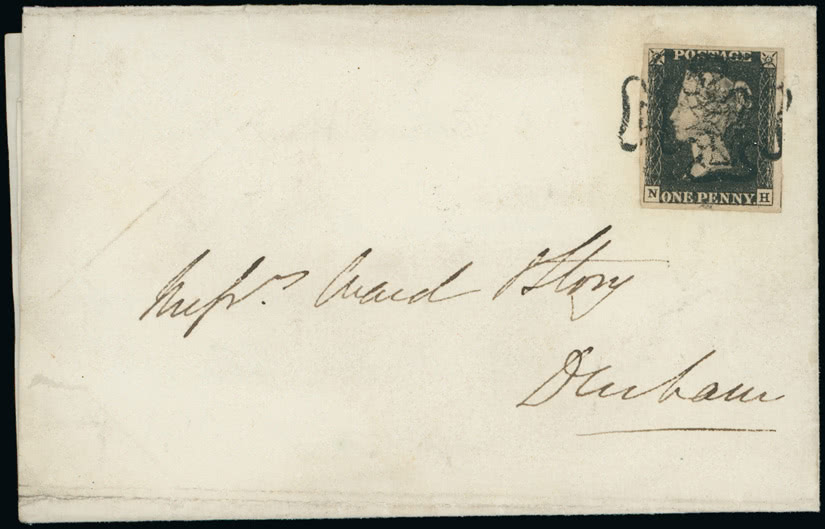 POSTAGE
N ONE PENNY H
Messrs. Ward & Story
Durham